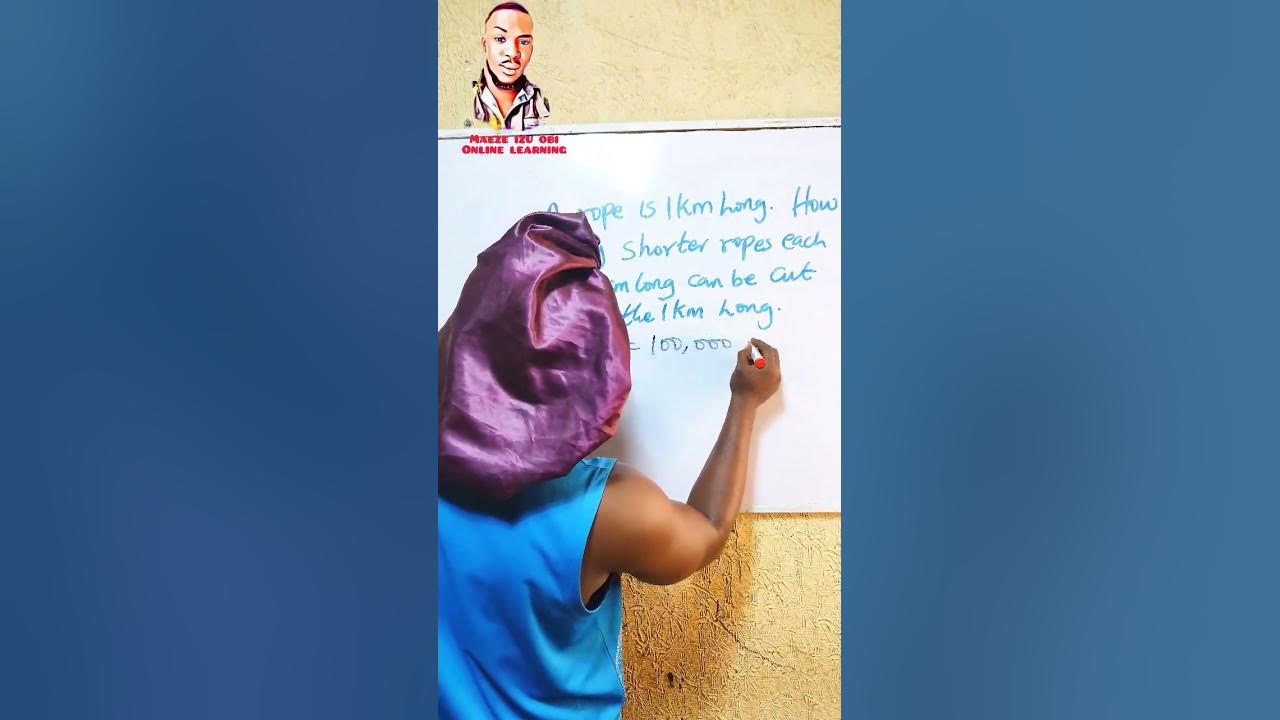 MAEZE IZU OBI
ONLINE LEARNING
rope is 1km Long. How
shorter ropes each
long can be cut
the 1km Long.
= 100,000